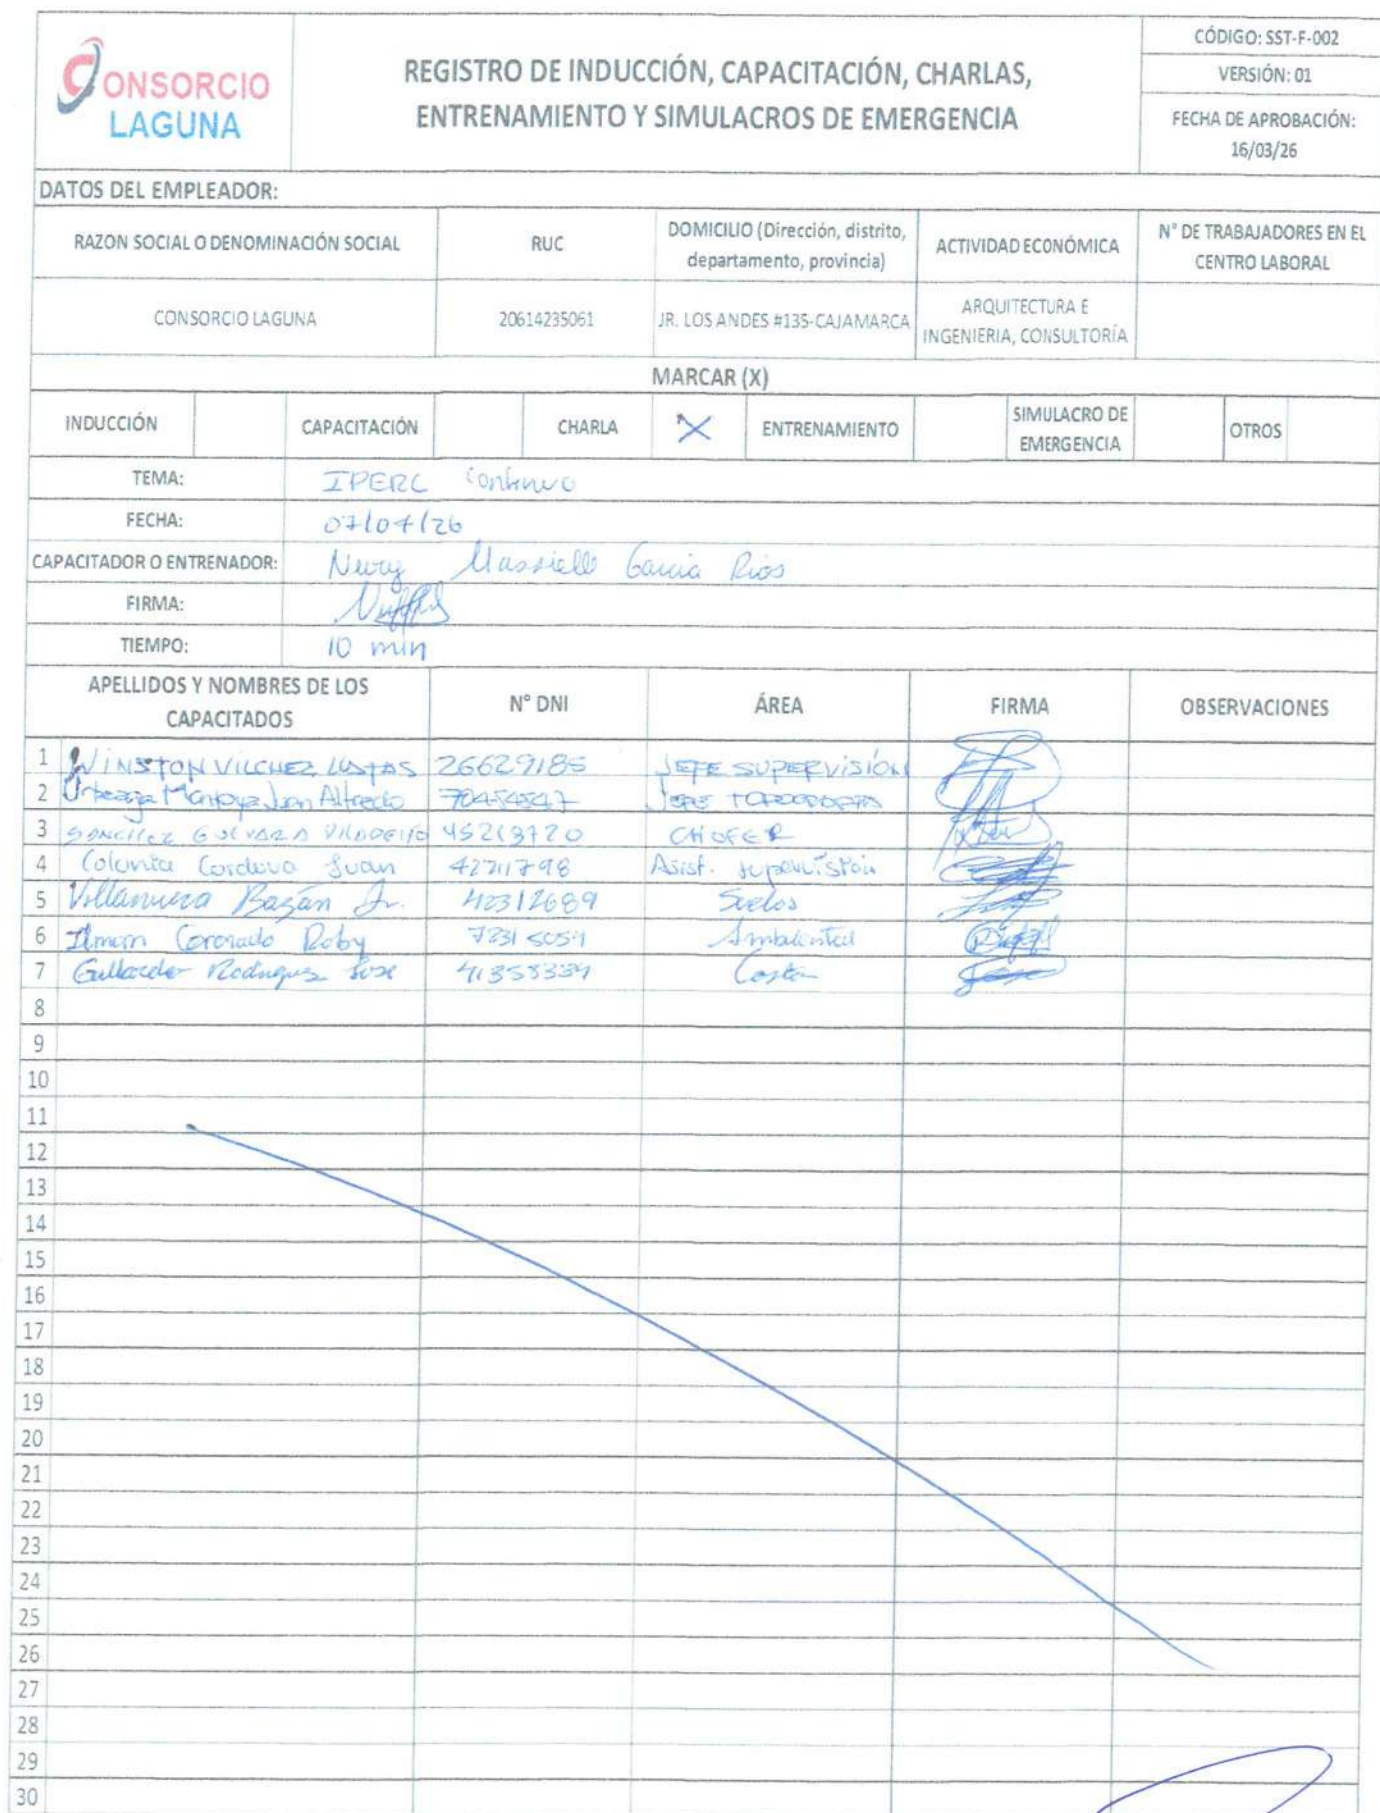 CONSORCIO
LAGUNA
REGISTRO DE INDUCCIÓN, CAPACITACIÓN, CHARLAS,
ENTRENAMIENTO Y SIMULACROS DE EMERGENCIA
CÓDIGO: SST-F-002
VERSIÓN: 01
FECHA DE APROBACIÓN:
16/03/26
DATOS DEL EMPLEADOR:
RAZON SOCIAL O DENOMINACIÓN SOCIAL RUC DOMICILIO (Dirección, distrito, departamento, provincia) ACTIVIDAD ECONÓMICA N° DE TRABAJADORES EN EL CENTRO LABORAL
CONSORCIO LAGUNA 20614235061 JR. LOS ANDES #135-CAJAMARCA ARQUITECTURA E INGENIERIA, CONSULTORÍA
MARCAR (X)
INDUCCIÓN CAPACITACIÓN CHARLA X ENTRENAMIENTO SIMULACRO DE EMERGENCIA OTROS
TEMA: IPERC Continuo
FECHA: 07/04/26
CAPACITADOR O ENTRENADOR: Massiell Garcia Rios
FIRMA:
TIEMPO: 10 min
APELLIDOS Y NOMBRES DE LOS CAPACITADOS N° DNI ÁREA FIRMA OBSERVACIONES
1 WINSTON VILCHEZ 26629185 JEFE SUPERVISIÓN
2 Juan Alfredo JEFE
3 SANCHEZ 45213720 CHOFER
4 Colonia Cordova Juan 42711798 Asist. supervisión
5 Villanueva Bazán Jr. 42312689 Suelos
6 Coronado Roby Ambiental
7 Gallardo Rodriguez Jose 41355334
8
9
10
11
12
13
14
15
16
17
18
19
20
21
22
23
24
25
26
27
28
29
30